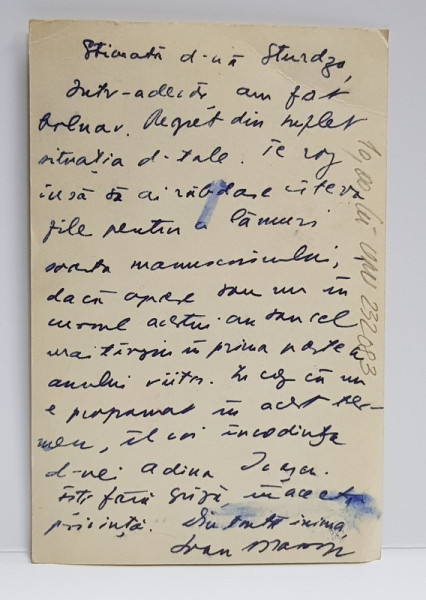 Stimată d-nă Sturdza,
Într-adevăr am fost
bolnav. Regret din suflet
situația d-tale. Te rog
însă să ai răbdare câteva
zile pentru a lămuri
soarta manuscrisului,
dacă apare sau nu în
cursul acestui an sau cel
mai târziu în prima parte a
anului viitor. În caz că nu
e programat în acest ter-
men, îl voi încredința
d-nei Adina
Fiți fără grijă în această
privință. Din toată inima,
Ivan
10,00 lei
232083